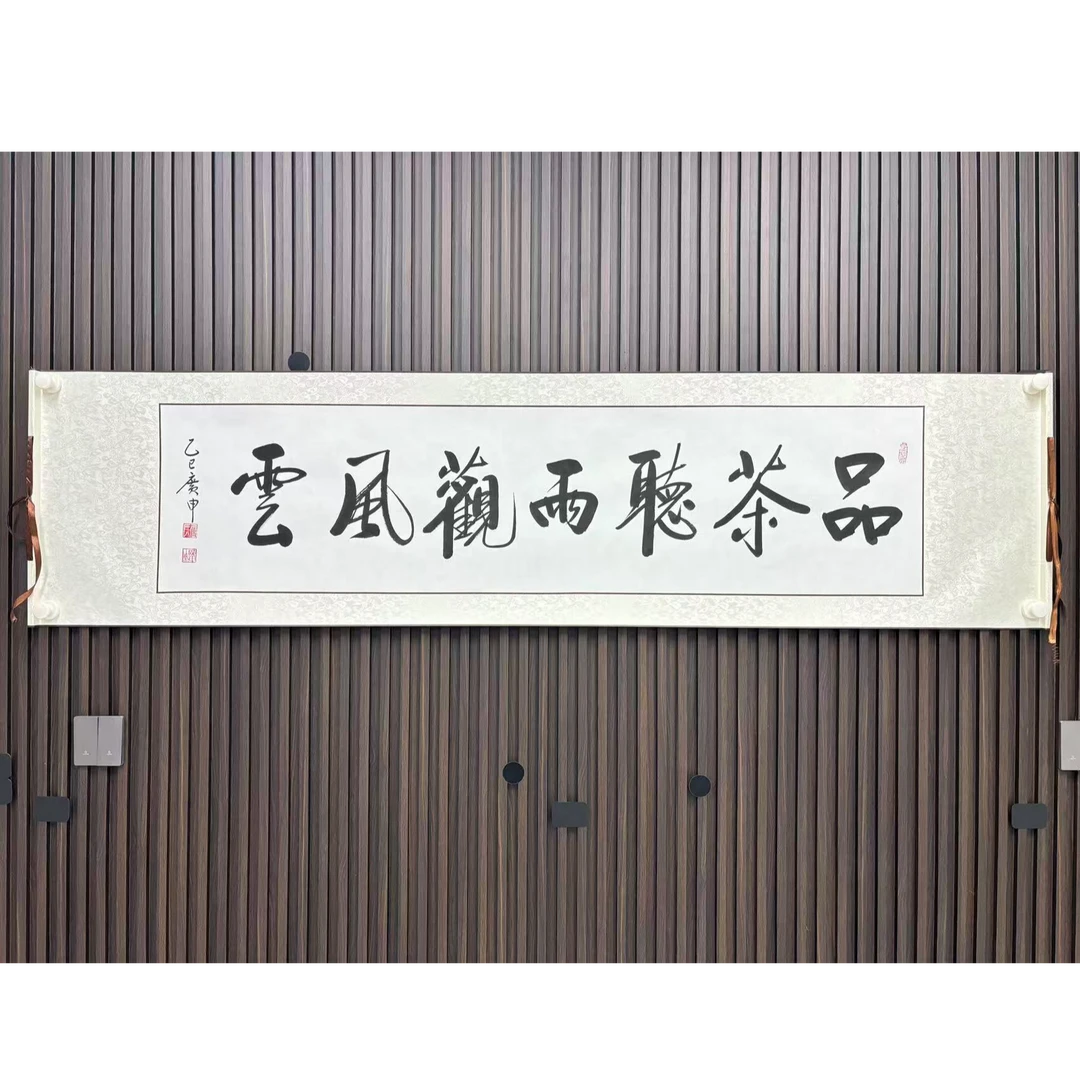 品茶聽雨觀風雲
乙巳廣申